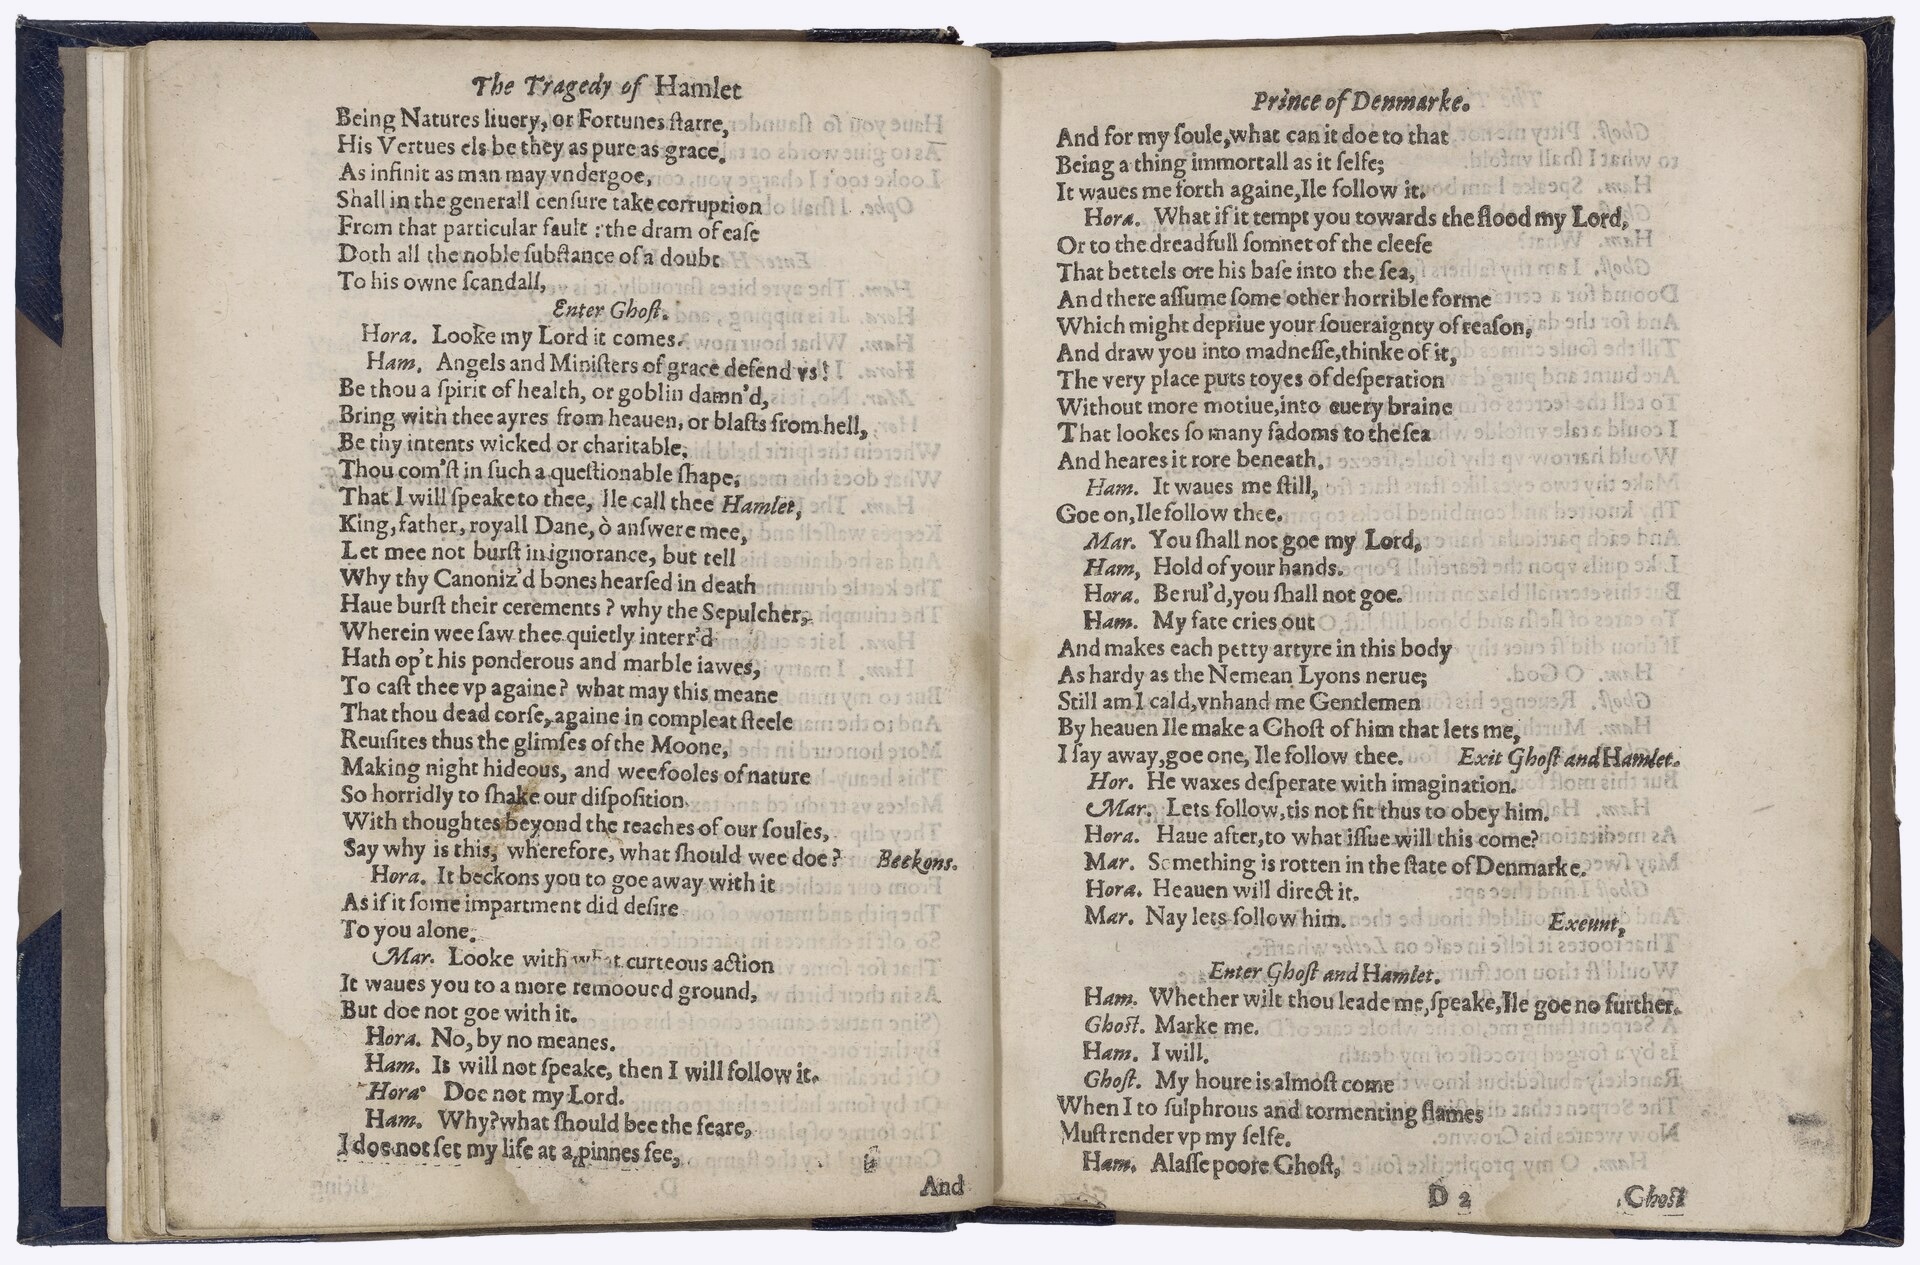 The Tragedy of Hamlet
Being Natures liuery, or Fortunes ſtarre,
His Vertues els be they as pure as grace,
As infinit as man may vndergoe,
Shall in the generall cenſure take corruption
From that particular fault : the dram of eaſe
Doth all the noble ſubſtance of a doubt
To his owne ſcandall,
Enter Ghoſt.
Hora. Looke my Lord it comes.
Ham. Angels and Miniſters of grace defend vs!
Be thou a ſpirit of health, or goblin damn'd,
Bring with thee ayres from heauen, or blaſts from hell,
Be thy intents wicked or charitable,
Thou com'ſt in ſuch a queſtionable ſhape,
That I will ſpeake to thee, Ile call thee Hamlet,
King, father, royall Dane, ò anſwere mee,
Let mee not burſt in ignorance, but tell
Why thy Canoniz'd bones hearſed in death
Haue burſt their cerements ? why the Sepulcher,
Wherein wee ſaw thee quietly interr'd
Hath op't his ponderous and marble iawes,
To caſt thee vp againe? what may this meane
That thou dead corſe, againe in compleat ſteele
Reuiſites thus the glimſes of the Moone,
Making night hideous, and wee fooles of nature
So horridly to ſhake our diſpoſition
With thoughtes beyond the reaches of our ſoules,
Say why is this, wherefore, what ſhould wee doe? Beckons.
Hora. It beckons you to goe away with it
As if it ſome impartment did deſire
To you alone.
Mar. Looke with what curteous action
It waues you to a more remooued ground,
But doe not goe with it.
Hora. No, by no meanes.
Ham. It will not ſpeake, then I will follow it.
Hora. Doe not my Lord.
Ham. Why? what ſhould bee the feare,
I doe not ſet my life at a pinnes fee,
And
Prince of Denmarke.
And for my ſoule, what can it doe to that
Being a thing immortall as it ſelfe;
It waues me forth againe, Ile follow it.
Hora. What if it tempt you towards the flood my Lord,
Or to the dreadfull ſomnet of the cleefe
That bettels ore his baſe into the ſea,
And there aſſume ſome other horrible forme
Which might depriue your ſoueraignty of reaſon,
And draw you into madneſſe, thinke of it,
The very place puts toyes of deſperation
Without more motiue, into euery braine
That lookes ſo many fadoms to the ſea
And heares it rore beneath.
Ham. It waues me ſtill,
Goe on, Ile follow thee.
Mar. You ſhall not goe my Lord,
Ham, Hold of your hands.
Hora. Be rul'd, you ſhall not goe.
Ham. My fate cries out
And makes each petty artyre in this body
As hardy as the Nemean Lyons nerue;
Still am I cald, vnhand me Gentlemen
By heauen Ile make a Ghoſt of him that lets me,
I ſay away, goe one, Ile follow thee. Exit Ghoſt and Hamlet.
Hor. He waxes deſperate with imagination.
Mar. Lets follow, tis not fit thus to obey him.
Hora. Haue after, to what iſſue will this come?
Mar. Something is rotten in the ſtate of Denmarke.
Hora. Heauen will direct it.
Mar. Nay lets follow him. Exeunt,
Enter Ghoſt and Hamlet.
Ham. Whether wilt thou leade me, ſpeake, Ile goe no further.
Ghoſt. Marke me.
Ham. I will.
Ghoſt. My houre is almoſt come
When I to ſulphrous and tormenting flames
Muſt render vp my ſelfe.
Ham. Alaſſe poore Ghoſt,
D 2 Ghoſt